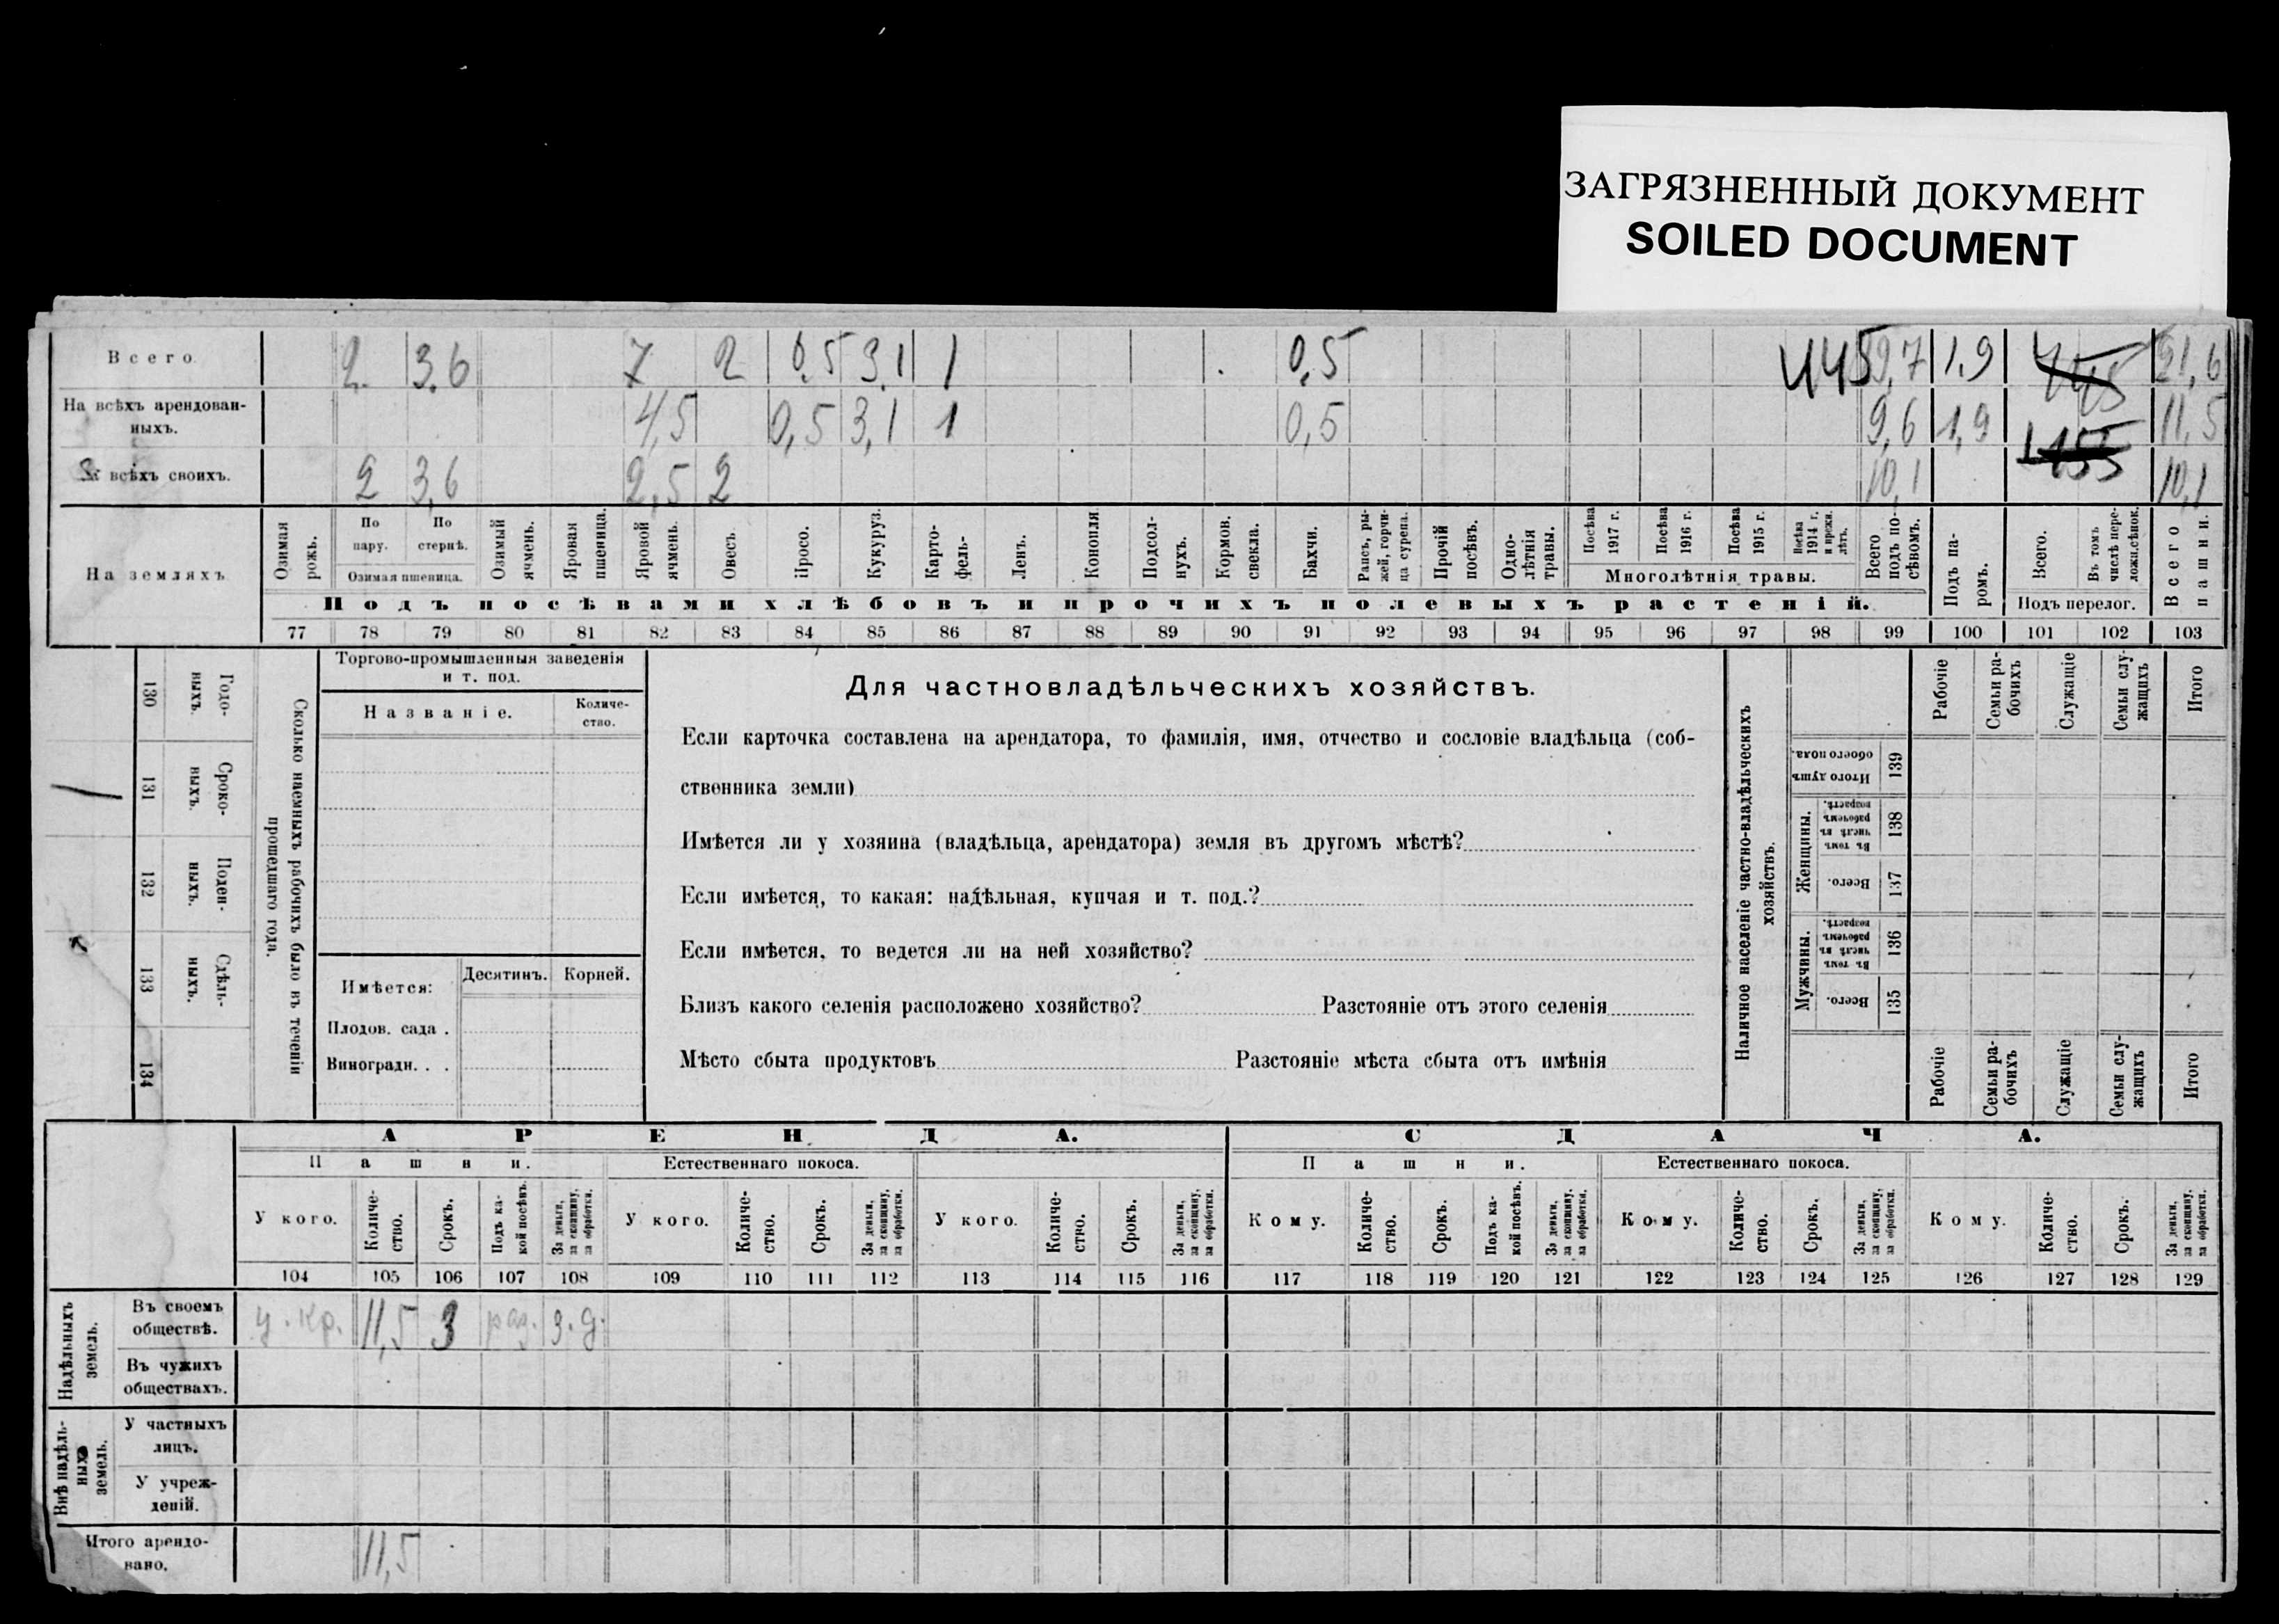 ЗАГРЯЗНЕННЫЙ ДОКУМЕНТ
SOILED DOCUMENT
Всего 2 3,6 7 2 0,5 3,1 1 0,5 445 19,7 1,9 21,6
На всѣхъ арендован-
ныхъ. 4,5 0,5 3,1 1 0,5 9,6 1,9 11,5
всѣхъ своихъ. 2 3,6 2,5 2 10,1 10,1
На земляхъ
Озимая рожь.
По пару.
По стернѣ.
Озимая пшеница.
Озимый ячмень.
Яровая пшеница.
Яровой ячмень.
Овесъ.
Просо.
Кукуруз.
Карто-
фель-
Ленъ.
Конопля
Подсол-
нухъ.
Кормов. свекла.
Бахчи.
Рапсъ, ры-
жей, горчи-
ца сурепа.
Прочій посѣвъ.
Одно-
лѣтнія травы.
Посѣва 1917 г.
Посѣва 1916 г.
Посѣва 1915 г.
Посѣва 1914 г. и прежн. лѣтъ.
Многолѣтнія травы.
Всего подъ по-
сѣвомъ.
Подъ па-
ромъ.
Всего.
Въ томъ числѣ пере-
ложн.сѣнок.
Подъ перелог.
Всего пашни.
Подъ посѣвами хлѣбовъ и прочихъ полевыхъ растеній.
77 78 79 80 81 82 83 84 85 86 87 88 89 90 91 92 93 94 95 96 97 98 99 100 101 102 103
130 Годо-
ныхъ.
131 Сроко-
ныхъ.
132 Поден-
ныхъ.
133 Сдѣль-
ныхъ.
134
Сколько наемныхъ рабочихъ было въ теченіи
прошедшаго года.
Торгово-промышленныя заведенія
и т. под.
Названіе. Количе-
ство.
Имѣется: Десятинъ. Корней.
Плодов. сада .
Виноградн. . .
Для частновладѣльческихъ хозяйствъ.
Если карточка составлена на арендатора, то фамилія, имя, отчество и сословіе владѣльца (соб-
ственника земли)
Имѣется ли у хозяина (владѣльца, арендатора) земля въ другомъ мѣстѣ?
Если имѣется, то какая: надѣльная, купчая и т. под.?
Если имѣется, то ведется ли на ней хозяйство?
Близъ какого селенія расположено хозяйство? Разстояніе отъ этого селенія
Мѣсто сбыта продуктовъ Разстояніе мѣста сбыта отъ имѣнія
Наличное населеніе частно-владѣльческихъ
хозяйствъ.
Рабочіе
Семьи ра-
бочихъ
Служащіе
Семьи слу-
жащихъ
Итого
Итого душъ обоего пола. 139
Женщины.
Въ томъ числѣ въ рабочемъ возрастѣ. 138
Всего. 137
Мужчины.
Въ томъ числѣ въ рабочемъ возрастѣ. 136
Всего. 135
Рабочіе
Семьи ра-
бочихъ
Служащіе
Семьи слу-
жащихъ
Итого
АРЕНДА. СДАЧА.
Пашни. Естественнаго покоса. Пашни. Естественнаго покоса.
У кого. Количе-
ство. Срокъ. Подъ ка-
кой посѣвъ. За деньги, за скопщину, за обработки.
У кого. Количе-
ство. Срокъ. За деньги, за скопщину, за обработки.
У кого. Количе-
ство. Срокъ. За деньги, за скопщину, за обработки.
Кому. Количе-
ство. Срокъ. Подъ ка-
кой посѣвъ. За деньги, за скопщину, за обработки.
Кому. Количе-
ство. Срокъ. За деньги, за скопщину, за обработки.
Кому. Количе-
ство. Срокъ. За деньги, за скопщину, за обработки.
104 105 106 107 108 109 110 111 112 113 114 115 116 117 118 119 120 121 122 123 124 125 126 127 128 129
Надѣльныхъ земель.
Въ своемъ
обществѣ. у. кр. 11,5 3 раз. з. д.
Въ чужихъ
обществахъ.
Внѣ надѣль-
ныхъ земель.
У частныхъ
лицъ.
У учреж-
деній.
Итого арендо-
вано. 11,5